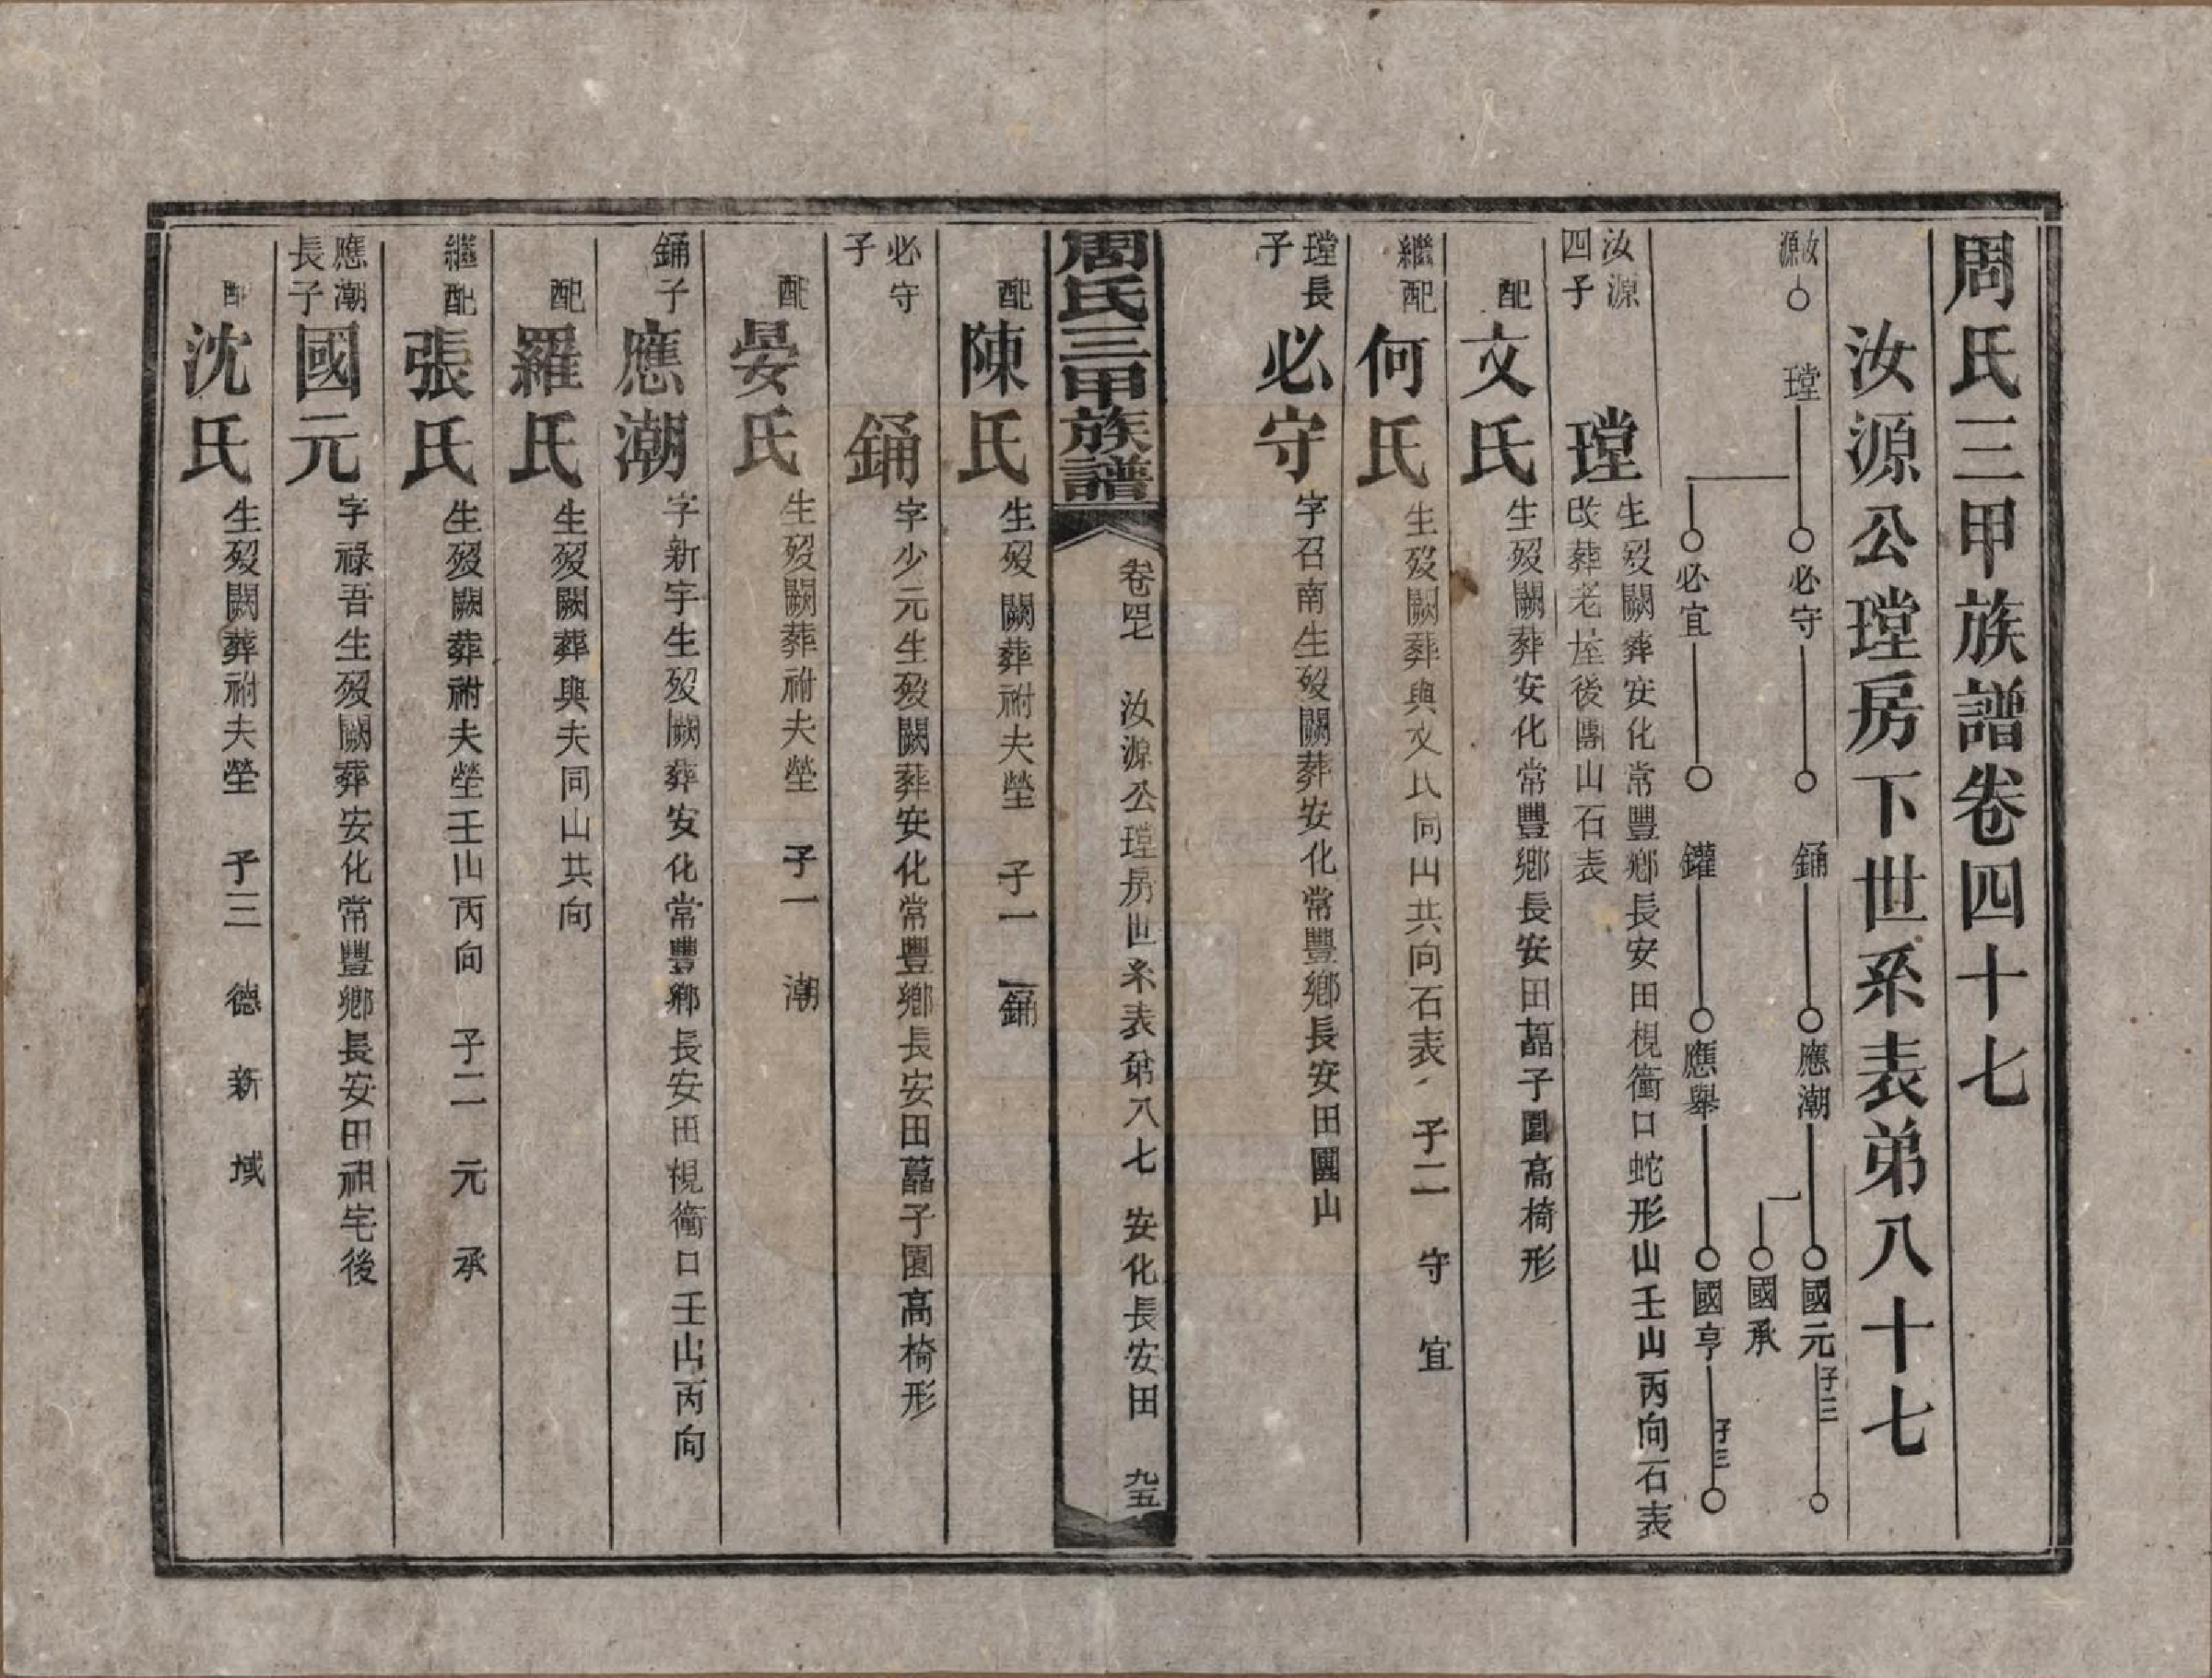 周氏三甲族譜卷四十七
汝源公瑝房下世系表弟八十七
汝源 瑝 必守 鏽 應潮 國元 子三
國承
必宜 鑵 應舉 國亨 子三
汝源四子 瑝 生歿闕葬安化常豐鄉長安田梘衝口蛇形山壬山丙向石表
改葬老屋後團山石表
配 文氏 生歿闕葬安化常豐鄉長安田藠子園高椅形
繼配 何氏 生歿闕葬與文氏同山共向石表 子二 守 宜
瑝長子 必守 字召南生歿闕葬安化常豐鄉長安田團山
周氏三甲族譜 卷四七 汝源公瑝房世系表弟八七 安化長安田 九五
配 陳氏 生歿闕葬祔夫塋 子一 鏽
必守子 鏽 字少元生歿闕葬安化常豐鄉長安田藠子園高椅形
配 晏氏 生歿闕葬祔夫塋 子一 潮
鏽子 應潮 字新宇生歿闕葬安化常豐鄉長安田梘衝口壬山丙向
配 羅氏 生歿闕葬與夫同山共向
繼配 張氏 生歿闕葬祔夫塋壬山丙向 子二 元 承
應潮長子 國元 字祿吾生歿闕葬安化常豐鄉長安田祖宅後
配 沈氏 生歿闕葬祔夫塋 子三 德 新 域